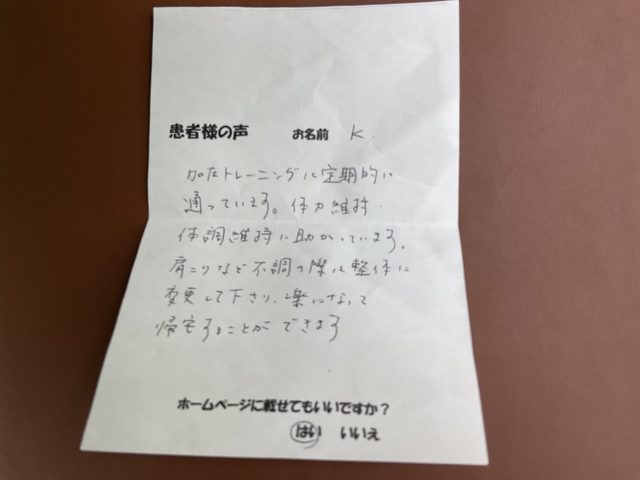 患者様の声 お名前 K.
加圧トレーニングに定期的に
通っています。体力維持・
体調維持に助かっています。
肩こりなど不調の際は整体に
変更して下さり、楽になって
帰宅することができます
ホームページに載せてもいいですか？
はい いいえ